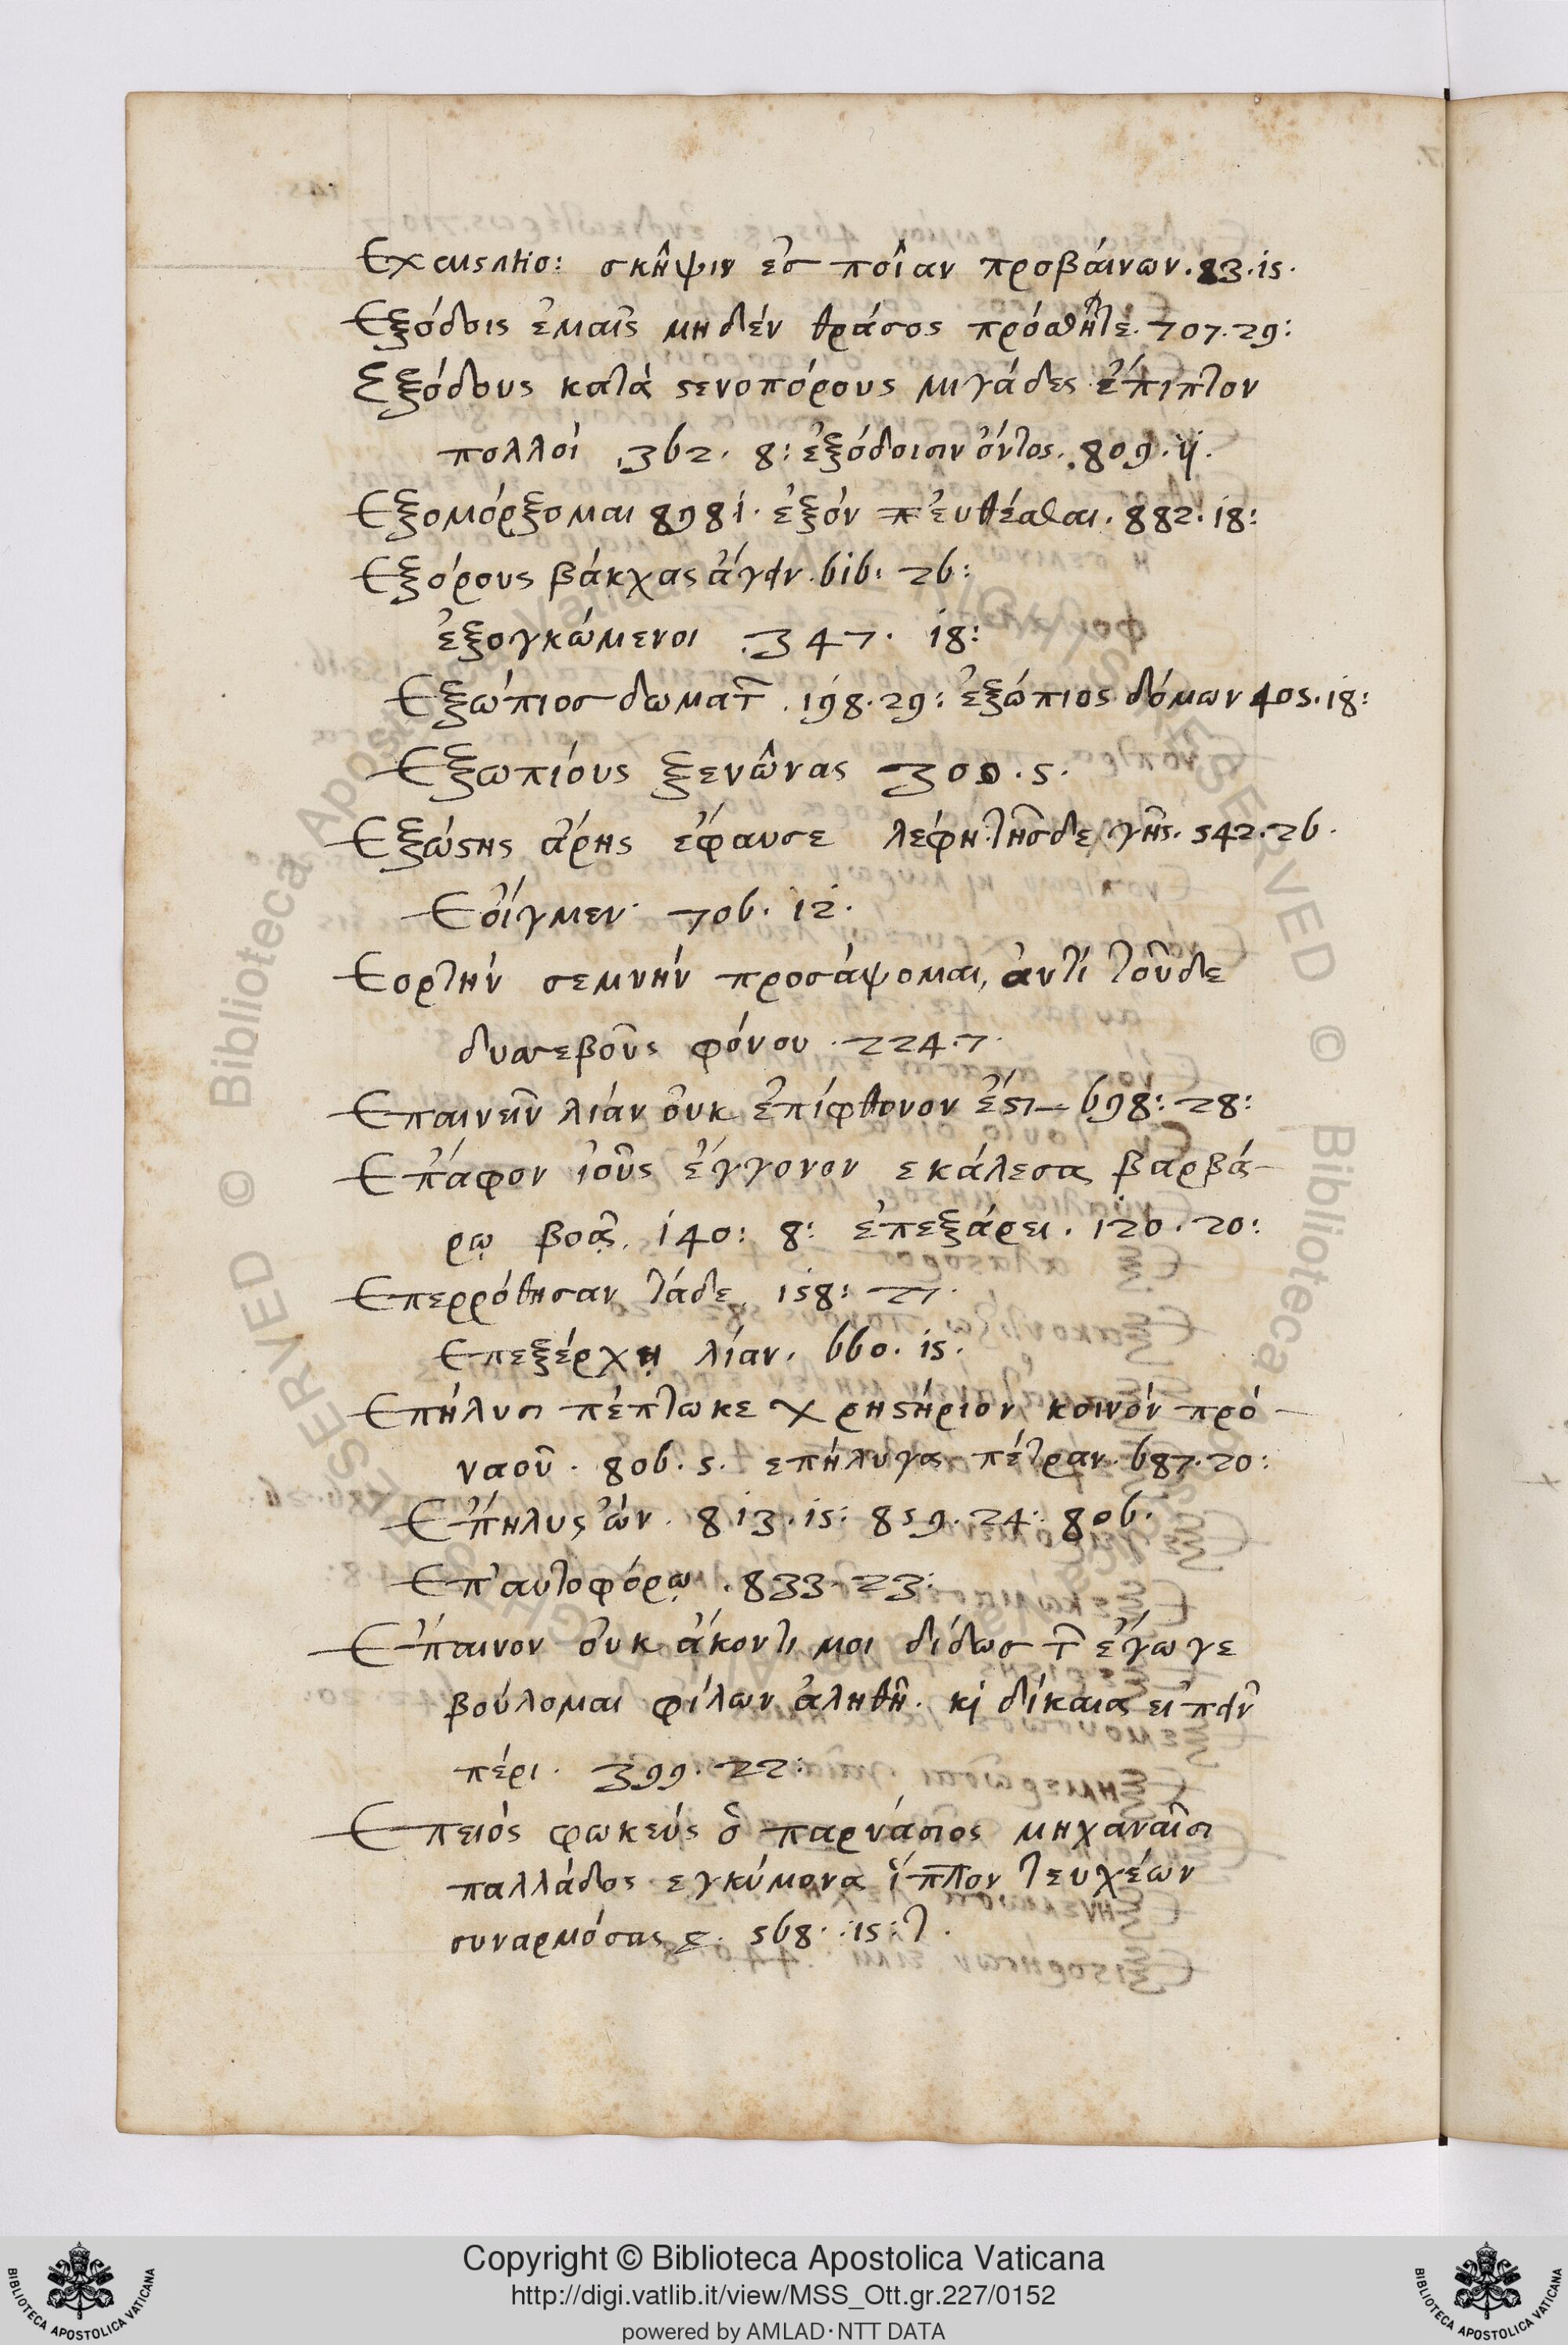 Excusatio: σκῆψιν ἐσ ποῖαν προβαίνων. 83. 15.
Εξόδοις ἐμαῖς μηδέν θράσος πρόσθητε. 707. 29:
Εξόδους κατά στενοπόρους μιγάδες ἔπιπτον
πολλοί 362. 8: ἐξόδοισιν ὄντος. 809. ij.
Εξομόρξομαι 898 1. ἐξόν πευθέσθαι. 882. 18:
Εξόρους βάκχας ἄγειν. 616: 26:
ἐξογκώμενοι 347. 18:
Εξώπιοσ δωματ 198. 29: ἐξώπιος δόμων 405. 18:
Εξωπίους ξενῶνας 300. 5.
Εξώστης ἄρης ἔφαυσε λεφη τῆσδε γῆς. 542. 26.
Εοίγμεν 706. 12.
Εορτήν σεμνήν προσάψομαι, ἀντί τοῦδε
δυσσεβοῦς φόνου. 224. 7.
Επαινεῖν λιάν οὐκ ἐπίφθονον ἐστι 698: 28:
Επαφον ἰοῦς ἔγγονον εκάλεσα βαρβά-
ρῳ βοᾷ. 140: 8: ἐπεξάρει. 120. 20:
Επερρόθησαν τάδε. 158: 27.
Επεξέρχῃ λίαν. 660. 15.
Επήλυσι πέπτωκε χρηστήριον κοινόν πρό-
ναοῦ. 806. 5. επήλυγα πέτραν. 687. 20:
Επηλυς ὤν. 813. 15: 859. 24: 806.
Επ' αυτοφόρῳ. 833. 23:
Επαινον οὐκ ἄκοντι μοι δίδωσ ἔγωγε
βούλομαι φίλων ἀληθῆ. κὶ δίκαια εἰπεῖν
πέρι. 399. 22:
Επειός φωκεύς ὁ παρνάσιος μηχαναῖσι
παλλάδος εγκύμονα ἵππον τευχέων
συναρμόσας 568. 15:
Copyright © Biblioteca Apostolica Vaticana
http://digi.vatlib.it/view/MSS_Ott.gr.227/0152
powered by AMLAD·NTT DATA